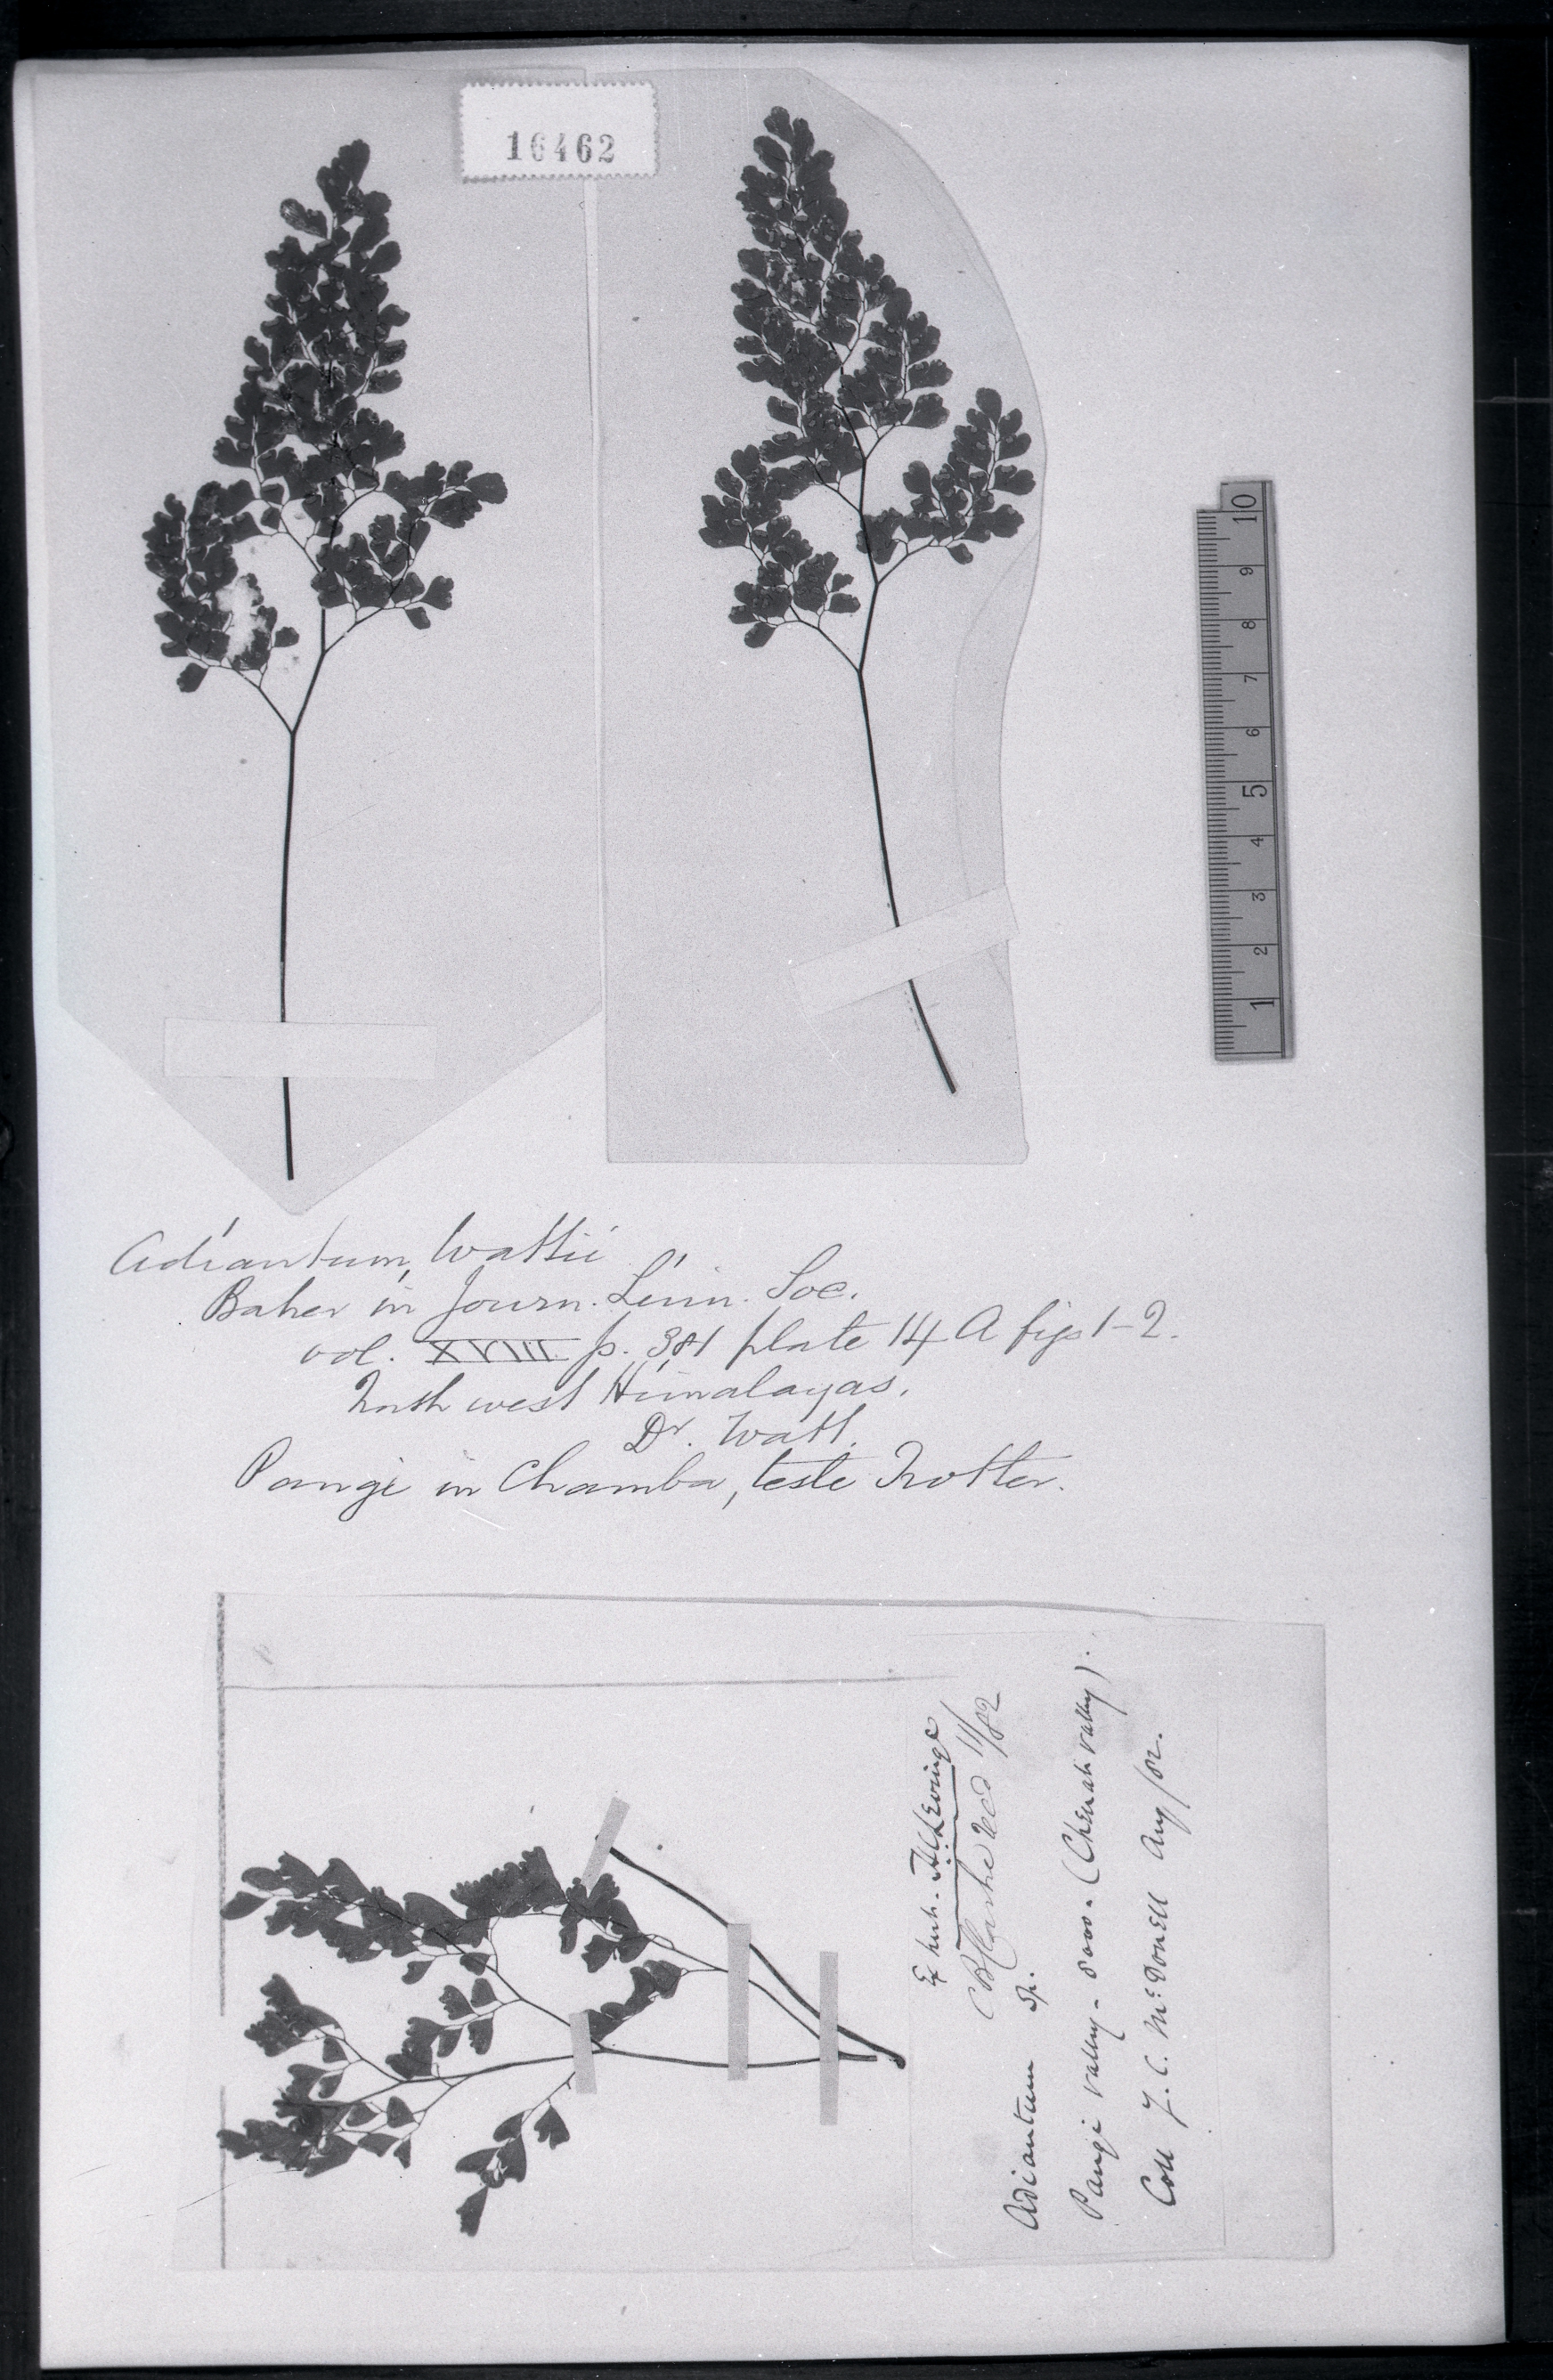 16462
10
9
8
7
6
5
4
3
2
1
Adiantum Wattii
Baker in Journ. Linn. Soc.
vol. XVIII p. 381 plate 14 A figs 1-2.
North west Himalayas.
Dr. Watt.
Pangi in Chamba, teste Trotter.
Ex herb. H. C. Levinge
C B Clarke 11/82
Adiantum sp.
Pangi valley - 8000. (Chenab valley).
Coll J. C. McDonell Aug /82.